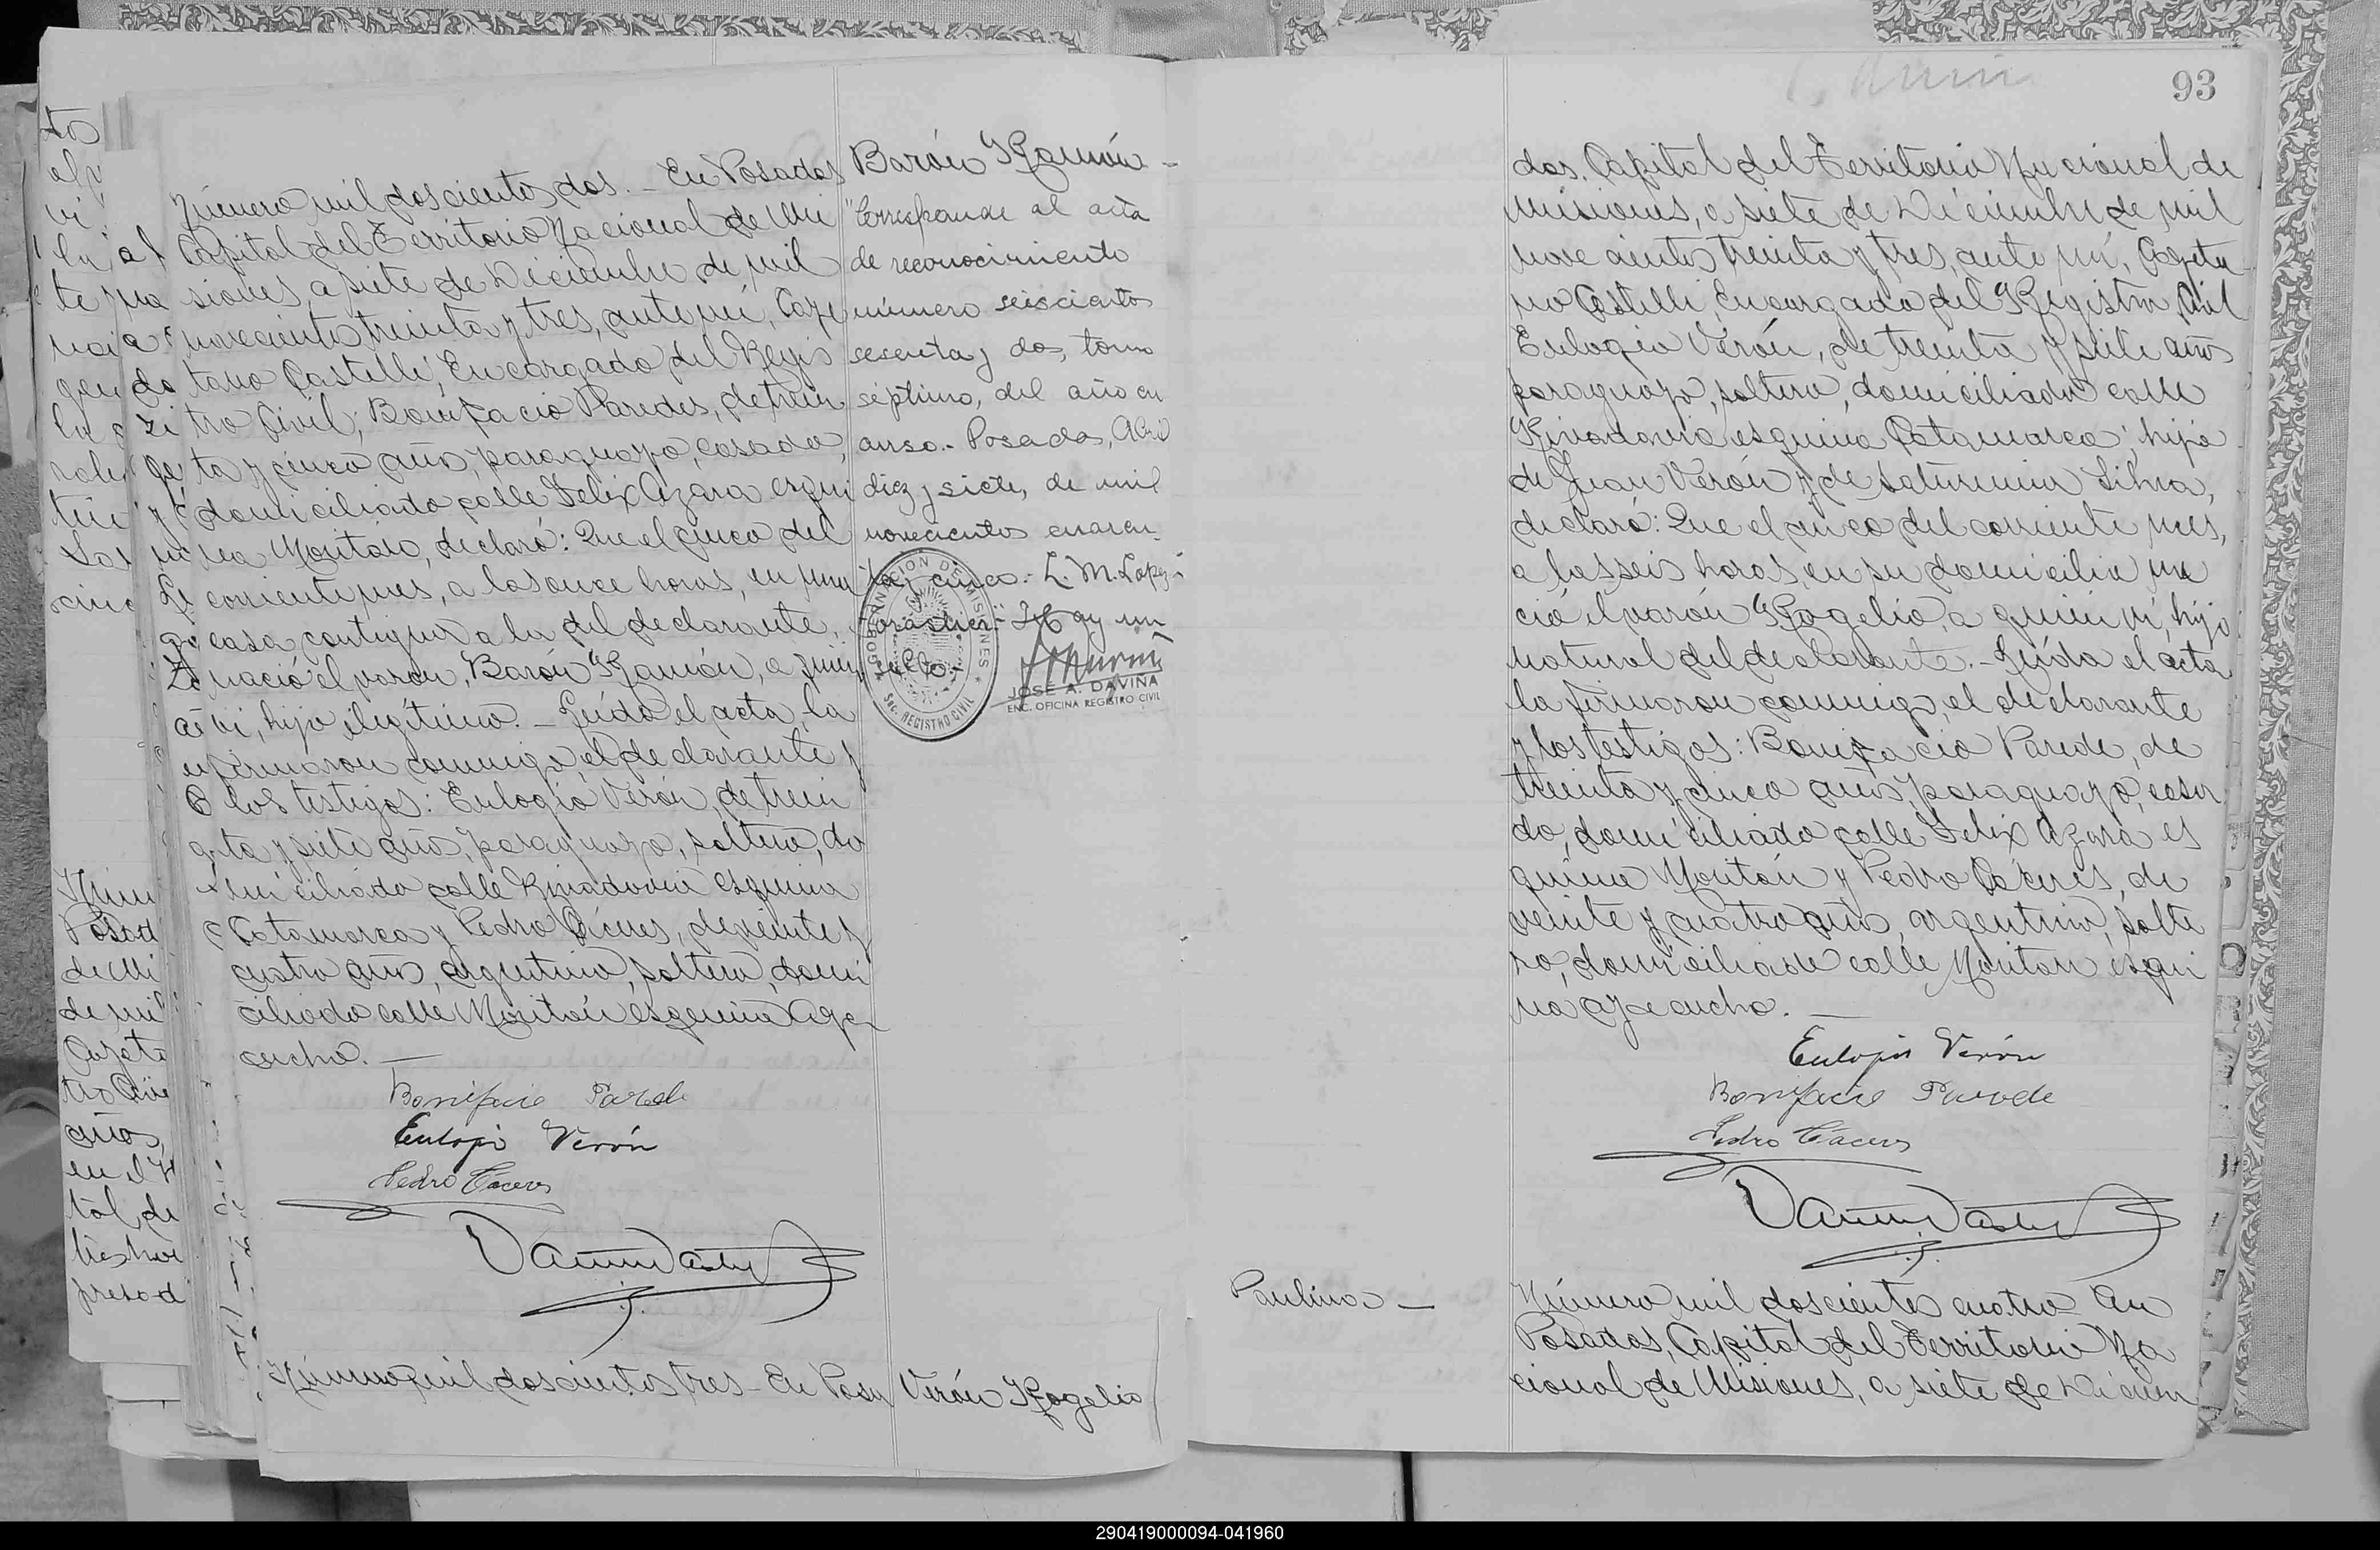 Número mil doscientos dos. - En Posados
Capital del Territorio Nacional de Mi
siones, a siete de Diciembre de mil
novecientos treinta y tres, ante mí, Caye
tano Castelli, Encargado del Regis
tro Civil; Bonifacio Paredes, de trein
ta y cinco años, paraguayo, casado,
domiciliado calle Felix Azara esqui
na Moritán, declaró: Que el cinco del
corriente mes, a las once horas, en una
casa contigua a la del declarante,
nació el varón, Barón Ramón, a quien
vi, hijo ilegítimo. - Leída el acta, la
firmaron conmigo, el declarante y
los testigos: Eulogio Verón, de trein
ta y siete años, paraguayo, soltero, do
miciliado calle Rivadavia esquina
Catamarca y Pedro Cáceres, de veinte y
cuatro años, argentino, soltero, domi
ciliado calle Moritán esquina Aya
cucho. —
Bonifacio Parede
Eulogio Verón
Pedro Cáceres
Número mil doscientos tres - En Posa
Barón Ramón -
"Corresponde al acta
de reconocimiento
número seiscientos
sesenta y dos, tomo
séptimo, del año en
curso. - Posadas, Abril
diez y siete, de mil
novecientos cuaren
ta y cinco. - L. M. Lopez
Forastier - Hay un
sello. -
GOBERNACION DE MISIONES
Sec. REGISTRO CIVIL
JOSÉ A. DAVIÑA
ENC. OFICINA REGISTRO CIVIL
Verón Rogelio
93
dos, Capital del Territorio Nacional de
Misiones, a siete de Diciembre de mil
nove cientos treinta y tres, ante mí, Cayeta
no Castelli, Encargado del Registro Civil
Eulogio Verón, de treinta y siete años
paraguayo, soltero, domiciliado calle
Rivadavia esquina Catamarca, hijo
de Juan Verón y de Saturnina Silva,
declaró: Que el cinco del corriente mes,
a las seis horas, en su domicilio na
ció el varón Rogelio, a quien vi, hijo
natural del declarante. - Leída el acta
la firmaron conmigo, el declarante
y los testigos: Bonifacio Parede, de
treinta y cinco años, paraguayo, casa
do, domiciliado calle Felix Azara es
quina Moritán y Pedro Cáceres, de
veinte y cuatro años, argentino, solte
ro, domiciliado calle Moritán esqui
na Ayacucho. —
Eulogio Verón
Bonifacio Parede
Pedro Cáceres
Paulino -
Número mil doscientos cuatro En
Posadas, Capital del Territorio Na
cional de Misiones, a siete de Diciem
290419000094-041960